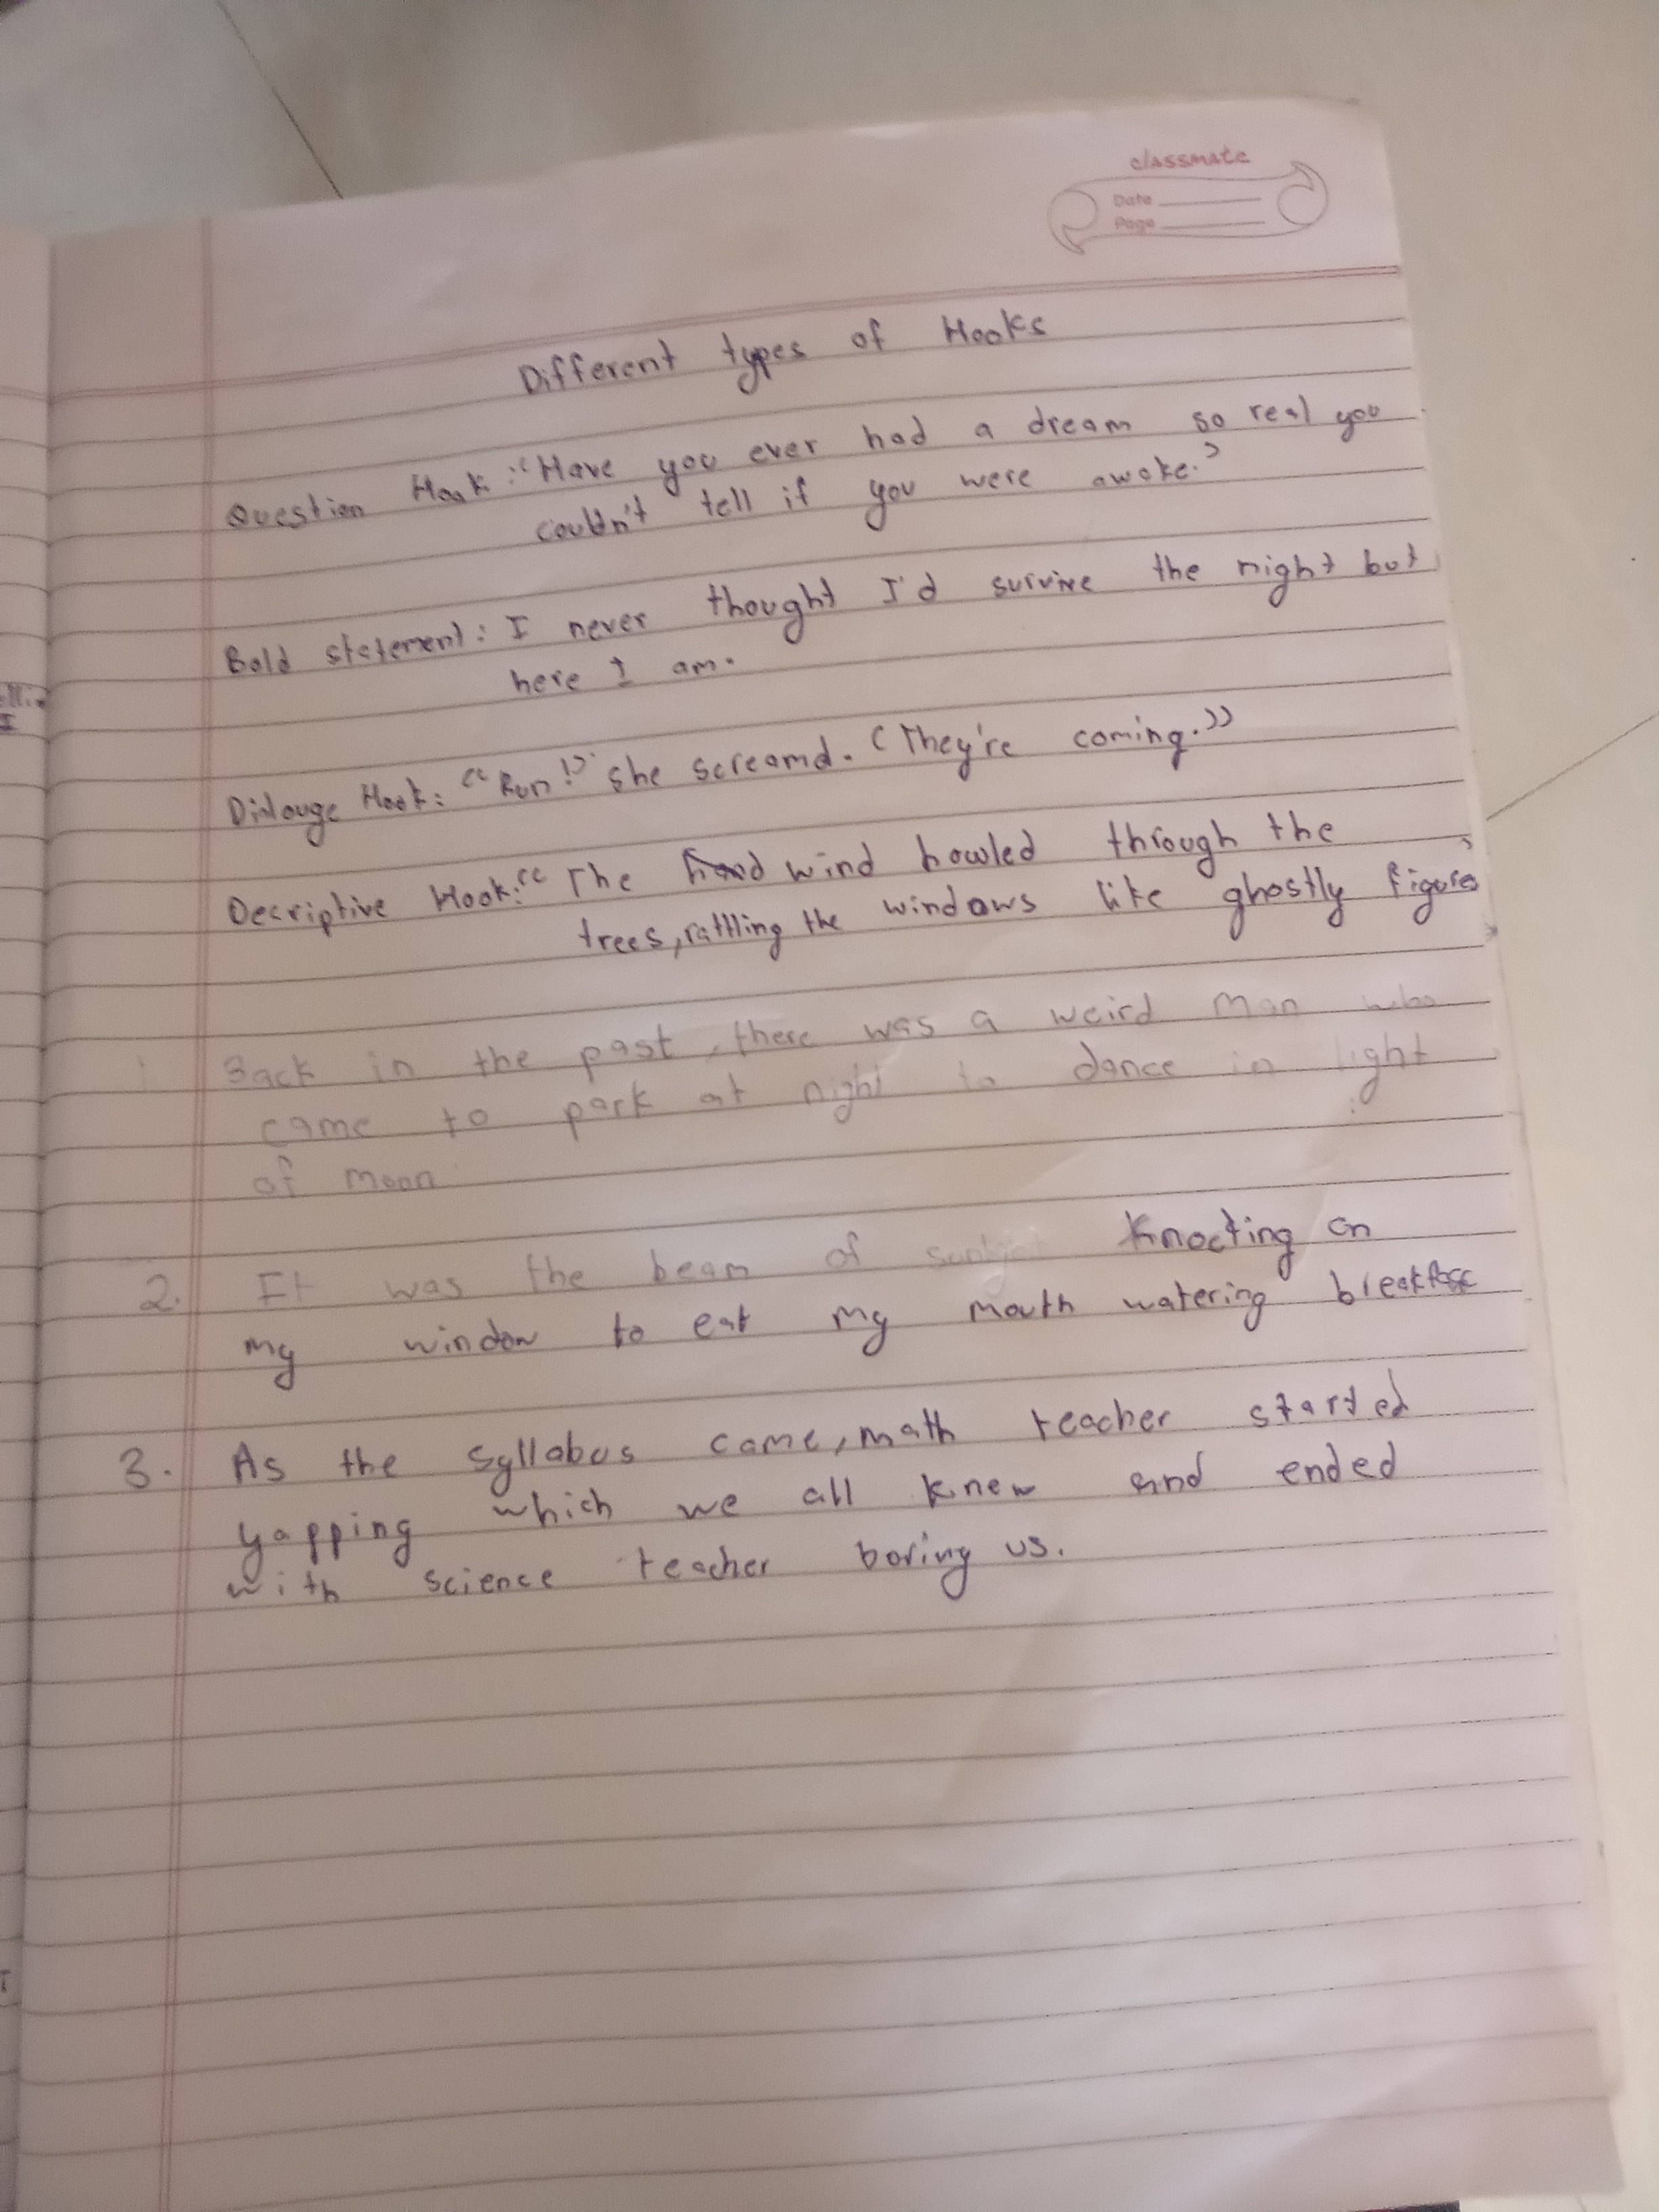 classmate
Date
Page
Different types of Hooks
Question Hook :"Have you ever had a dream so real you
couldn't tell if you were awake.?
Bold statement: I never thought I'd survive the night but
here I am.
Dialouge Hook: "Run!" she screamd. (They're coming."
Decriptive Hook:" The wind howled through the
trees, rattling the windows like ghostly figures
1 Back in the past, there was a weird man who
came to park at night to dance in light
of moon
2. It was the beam of Knocking on
my window to eat my mouth watering breakfast
3. As the syllabus came, math teacher started
yapping which we all knew and ended
with science teacher boring us.